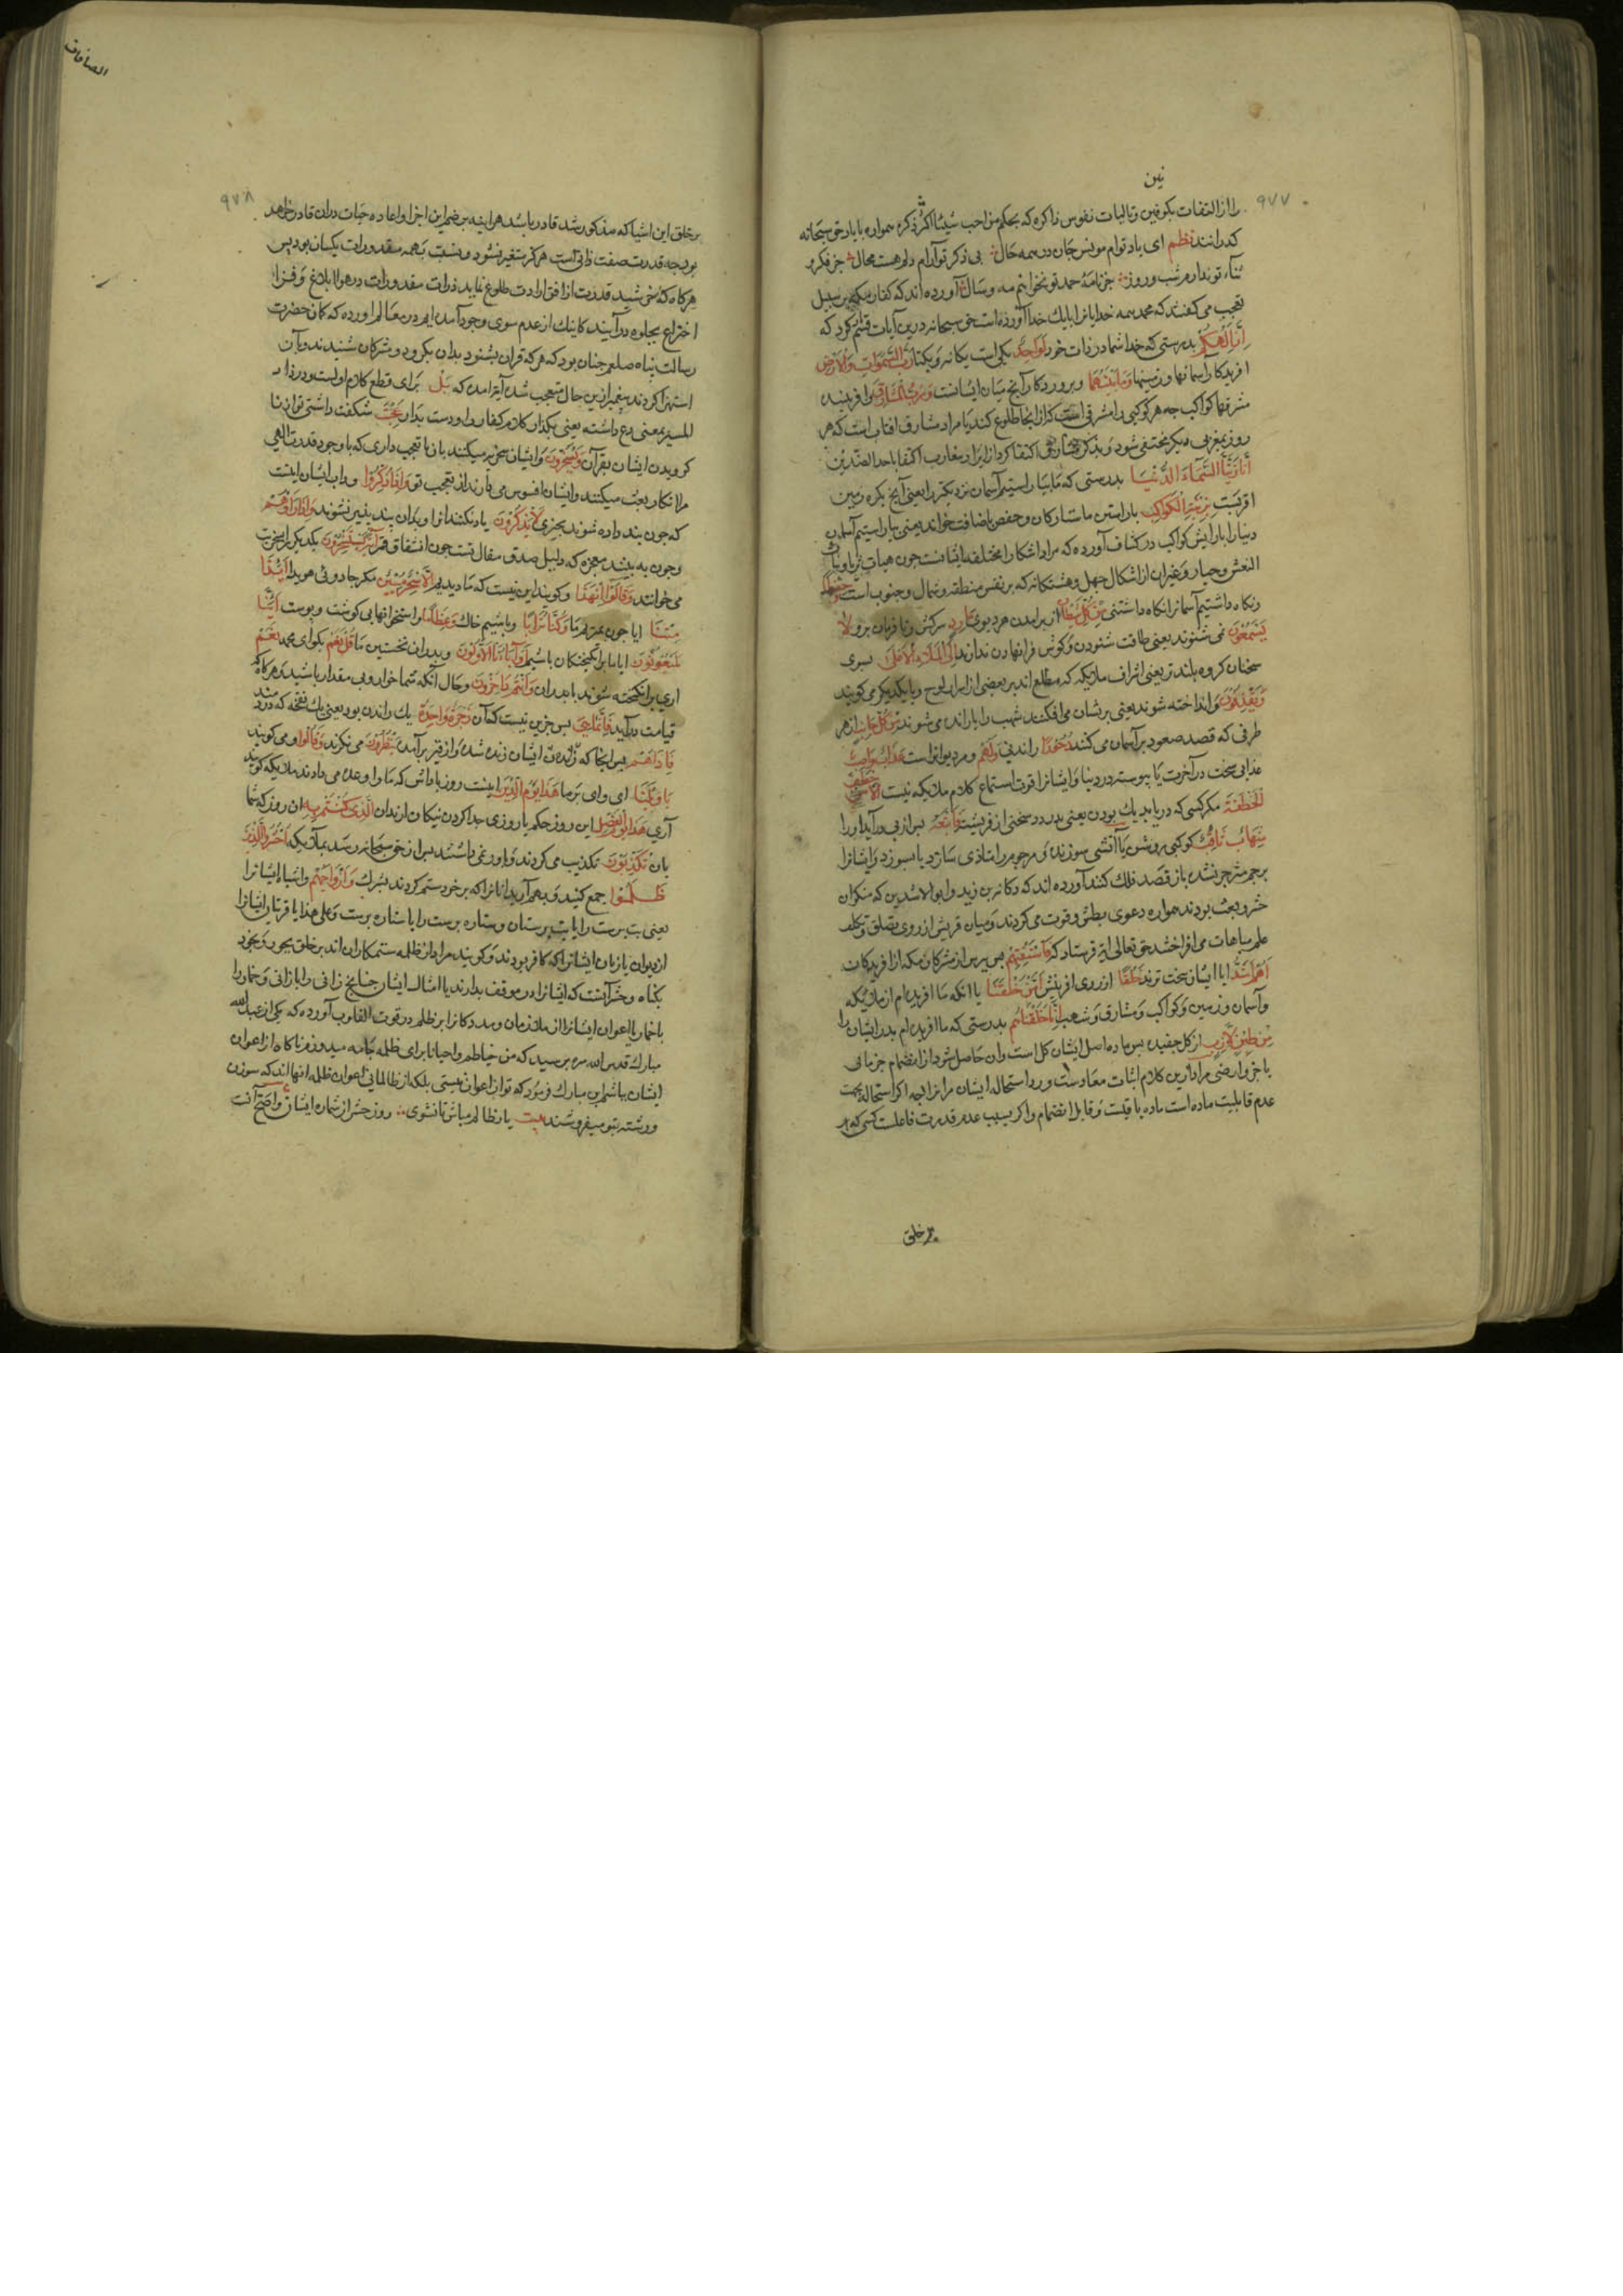 نین
۹۷۷
را از التفات بکونین و تالیات نفوس ذاکره که بحکم من احب شیئا اکثر ذکره همواره با یاد حق سبحانه
کذرانند نظم ای یاد توام مونس جان در همه حال بی ذکر تو آرام دلم هست محال جز فکر
ثناء تو ندارم شب و روز جز نامهٔ حمد تو نخوانم مه و سال آورده اند که کفار مکه بر سبیل
تعجب می کفتند که محمد همه خدایانرا بایک خدا آورده است حق سبحانه درین آیات قسم یاد کرد که
اِنَّ اِلٰهَكُمْ بدرستی که خدا شما در ذات خود لَوَاحِدٌ یکی است یکانه و یکتا رَبُّ السَّمٰوَاتِ وَالْاَرْضِ
افریدکار آسمانها و زمینها وَمَا بَيْنَهُمَا و پروردکار آنچ میان ایشانست وَرَبُّ الْمَشَارِقِ و افریننده
مشرقهاء کواکب چه هر کوکبی را مشرقی است که از انجا طلوع کند یا مراد مشارق افتاب است که هر
روز بمغربی دیکر مختفی شود و بذکر مشارق اکتفا کرد از ایراد مغارب اکتفا باحد الضدین
اِنَّا زَيَّنَّا السَّمَاءَ الدُّنْيَا بدرستی که ما بیاراستیم آسمان نزدیکتر را یعنی آنچ بکره زمین
اقربست بِزِينَةٍ الْكَوَاكِبِ باراستن ما ستارکان و حفص باضافت خواند یعنی بیاراستیم آسمان
دنیا را بارایش کواکب در کشاف آورده که مراد اشکال مختلفه ایشانست چون هیات ثریا و بنات
النعش و جبار و غیر آن از اشکال چهل و هشتکانه که بر نفس منطقه و شمال و جنوب است وَحِفْظًا
و نکاه داشتیم آسمانرا نکاه داشتنی مِنْ كُلِّ شَيْطَانٍ از بر امدن هر دیوی مَارِدٍ سرکش و نا فرمان برو لَا
يَسَّمَّعُونَ نمی شنوند یعنی طاقت شنودن و کوش فرا نهادن ندارند اِلَى الْمَلَاِ الْاَعْلٰى بسوی
سخنان کروه بلند تر یعنی اشراف ملایکه که مطلع اند بر بعضی از اسرار لوح و با یکدیکر می کویند
وَيُقْذَفُونَ و انداخته شوند یعنی بر شان می افکنند شهب را باراند می شوند مِنْ كُلِّ جَانِبٍ از هر
طرفی که قصد صعود بر آسمان می کنند دُحُورًا راندنی وَلَهُمْ و مر دیوانرا است عَذَابٌ وَاصِبٌ
عذابی سخت در آخرت یا پیوسته در دنیا و ایشانرا قوت استماع کلام ملایکه نیست اِلَّا مَنْ خَطِفَ
الْخَطْفَةَ مکر کسی که در یابد یک بودن یعنی بدزدد سخنی از فرشته فَاَتْبَعَهُ پس از پی در آید او را
شِهَابٌ ثَاقِبٌ کوکبی روشن یا آتشی سوزنده و مرجوم را متاذی سازد یا بسوزد و ایشانرا
برجم منزجر نشده باز قصد فلک کنند آورده اند که رکانه بن زید و ابو الاشدین که منکران
حشر و بعث بودند همواره دعوی بطش و قوت می کردند و میان قریش از روی تصلف و تکلف
علم مباهات می افراختند حق تعالی آیه فرستاد که فَاسْتَفْتِهِمْ پس بپرس از مشرکان مکه از افریدکان
اَهُمْ اَشَدُّ ایا ایشان سخت ترند خَلْقًا از روی افرینش اَمْ مَنْ خَلَقْنَا یا آنکه ما افریده ام از ملایکه
و آسمان و زمین و کواکب و مشارق و شهب اِنَّا خَلَقْنَاهُمْ بدرستی که ما افریده ام پدر ایشان را
مِنْ طِينٍ لَازِبٍ از کل چفیده پس ماده اصل ایشان کل است و آن حاصل شود از انضمام جز مایی
با جز و ارضی مراد ازین کلام اثبات معادست و رد استحاله ایشان مرانرا چه اکر استحاله بجهت
عدم قابلیت ماده است ماده باقیست و قابل انضمام و اکر بسبب عدم قدرت فاعلست کسی که بر
بر خلق
الصافات
۹۷۸
بر خلق این اشیا که مذکور شد قادر باشد هراینه بر ضم این اجزا و اعاده حیات دران قادر خواهد
بود چه قدرت صفت ذاتی است هرکز متغیر نشود و نسبت بهمه مقدورات یکسان بود پس
هرکاه که خورشید قدرت از افق ارادت طلوع نماید ذرات مقدورات در هوا ابلاغ و فزا
اختراع بجلوه در آیند کاینک از عدم سوی وجود آمده ایم در معالم اورده که کمان حضرت
رسالت پناه صلعم چنان بود که هر که قران بشنود بدان بکرود و مشرکان شنیدند و بآن
استهزا کردند پیغمبر ازین حال متعجب شد آیه امد که بَلْ برای قطع کلام اولست و در زاد
المسیر بمعنی دع داشته یعنی بکذار کلام کفار را و دست بدار عَجِبْتَ شکفت داشتی تو از نا
کرویدن ایشان بقرآن وَيَسْخَرُونَ و ایشان سخریه میکنند بان یا تعجب داری که با وجود قدرت الهی
مرا انکار بعث میکنند و ایشان افسوس می دارند از تعجب تو وَاِذَا ذُكِّرُوا و داب ایشان اینست
که چون پند داده شوند بچیزی لَا يَذْكُرُونَ یاد نکنند انرا و بدان پند پذیر نشوند وَاِذَا رَاَوْا اٰيَةً
و چون به بینند معجزه که دلیل صدق مقال تست چون انشقاق قمر يَسْتَسْخِرُونَ یکدیکر را بسخریت
می خوانند وَقَالُوا اِنْ هٰذَا و کویند این نیست که ما دیدیم اِلَّا سِحْرٌ مُبِينٌ مکر جادوئی هویدا اَئِذَا
مِتْنَا ایا چون بمیریم ما وَكُنَّا تُرَابًا و باشیم خاک وَعِظَامًا و استخوانهای بی کوشت و پوست اَئِنَّا
لَمَبْعُوثُونَ ایا ما برانکیختکان باشیم اَوَاٰبَاؤُنَا الْاَوَّلُونَ و پدران نخستین ما قُلْ نَعَمْ بکو ای محمد نعم
اری برانکیخته شوند با پدران وَاَنْتُمْ دَاخِرُونَ و حال آنکه شما خوار و بی مقدار باشید و هرکاه که
قیامت در آید فَاِنَّمَا هِيَ پس جز این نیست که آن زَجْرَةٌ وَاحِدَةٌ یک راندن بود یعنی یک نفخه که در دمند
فَاِذَا هُمْ پس انجا که ایشان زنده شده و از قبر برآمده يَنْظُرُونَ می نکرند وَقَالُوا و می کویند
يَا وَيْلَنَا ای وای بر ما هٰذَا يَوْمُ الدِّينِ اینست روز پاداش که ما را وعده می دادند ملایکه کویند
آری هٰذَا يَوْمُ الْفَصْلِ این روز حکم یا روزی جدا کردن نیکان از بدان الَّذِي كُنْتُمْ بِهِ ان روز که شما
بان تُكَذِّبُونَ تکذیب می کردند و باور نمی داشتند پس از حق سبحانه رسد بملایکه اُحْشُرُوا الَّذِينَ
ظَلَمُوا جمع کنید و بهم آرید انانرا که بر خود ستم کردند بشرک وَاَزْوَاجَهُمْ و اشباه ایشانرا
یعنی بت پرست را با بت پرستان و ستاره پرست را با ستاره پرست و علی هذا یا قرینان ایشانرا
از دیوان یا زنان ایشانرا که کافر بودند و کویند مراد از ظلمه ستمکاران اند بر خلق بجور و بخود
بکناه و حشر آنست که ایشانرا در موقف بدارند با امثال ایشان چنانچ زانی را با زانی و خمار را
با خمار یا اعوان ایشانرا از ملازمان و مددکانرا بر ظلم در قوت القلوب آورده که یکی از عبد الله
مبارک قدس الله سره پرسید که من خیاطم و احیانا برای ظلمه جامه میدوزم ناکاه از اعوان
ایشان باشم ابن مبارک فرمود که تو از اعوان نیستی بلکه از ظالمانی اعوان ظلمه انها اند که سوزن
و رشته بتو میفروشند بیت یار ظالم مباش تا نشوی روز حشر از شماره ایشان و اصح آنست